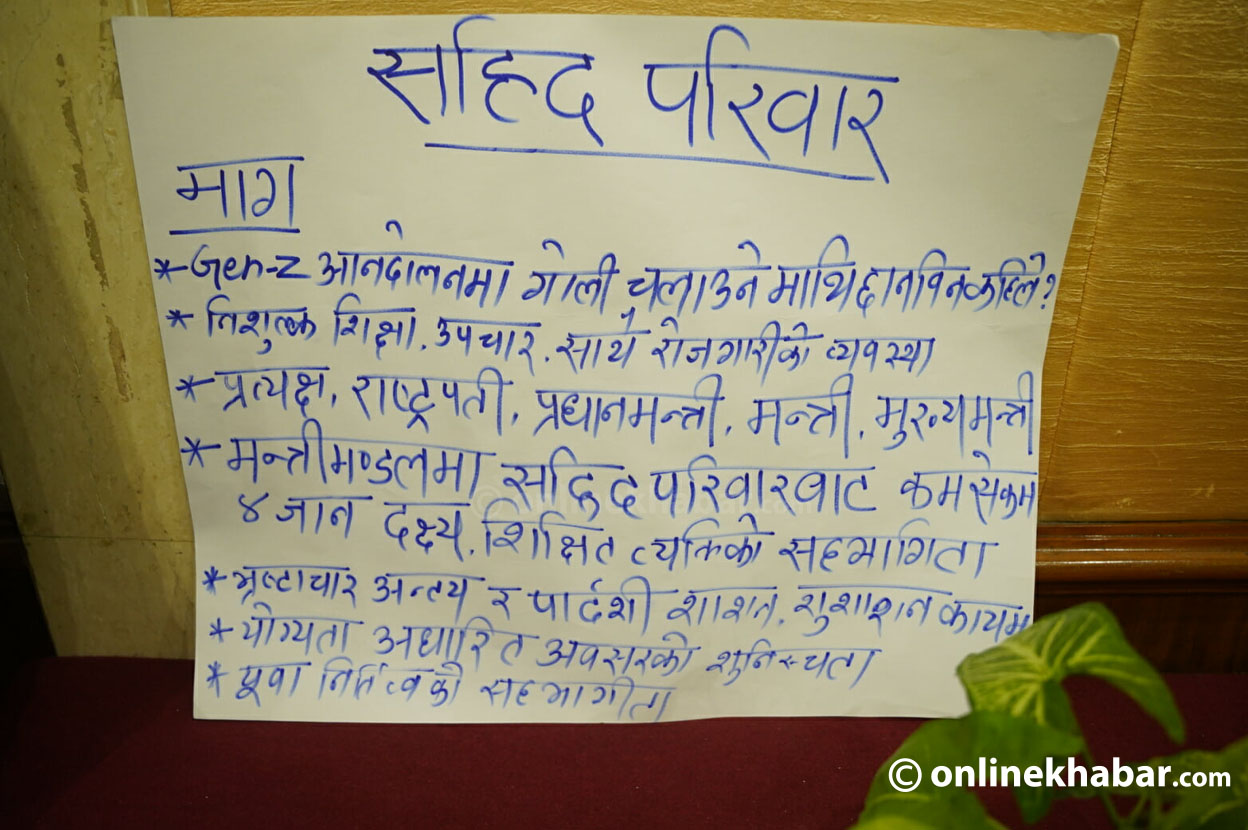 सहिद परिवार
माग
*-Gen-z आनदोलनमा गोली चलाउने माथि छानविन कहिले?
* निशुल्क शिक्षा. उपचार. साथै रोजगारीको व्यवस्था
*-प्रत्यक्ष, राष्ट्रपती, प्रधानमन्त्री, मन्त्री, मुख्यमन्त्री
*- मन्त्रीमण्डलमा सहिद परिवारबाट कम सेकम
४ जान दक्ष्य, शिक्षित व्यक्तिको सहभागिता
*-भ्रष्टाचार अन्त्य र पार्दशी शाशन, सुशाशन कायम
*-योग्यता अधारित अवसरको शुनिस्चता
*-यूवा सहभागीता
© onlinekhabar.com